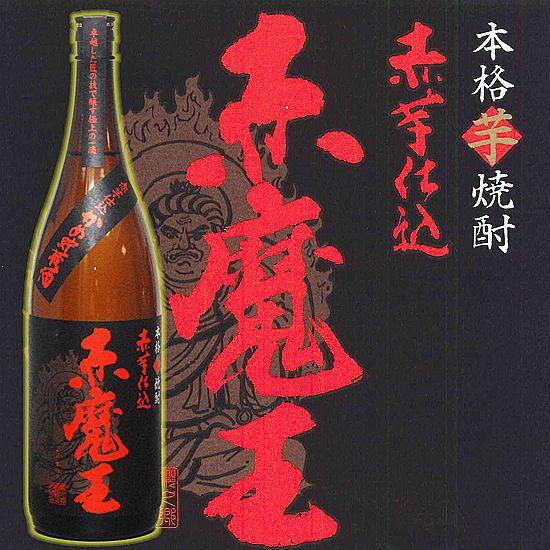 本格芋焼酎
赤芋仕込
赤魔王
卓越した匠の技で醸す極上の一滴
赤芋仕込
かめ貯蔵酒
本格芋焼酎
赤芋仕込
赤魔王